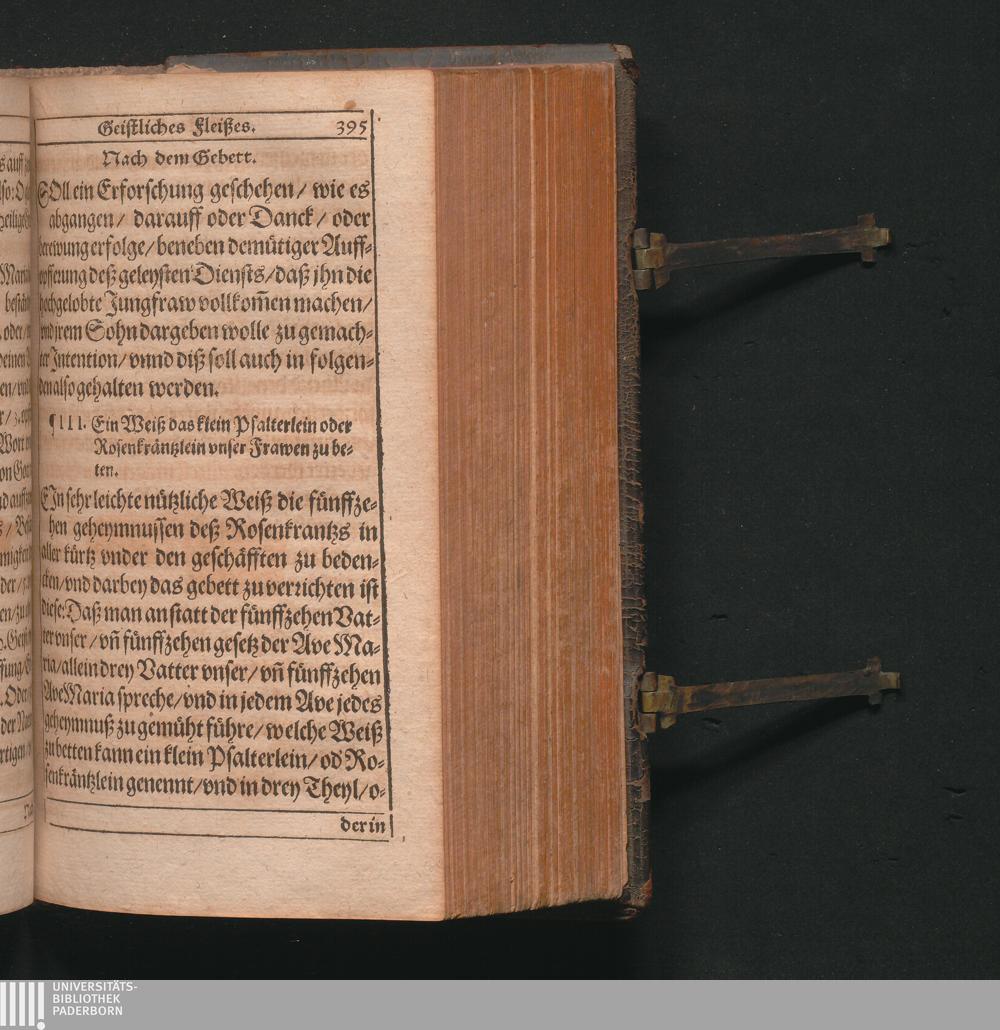 Geistliches Fleißes. 395
Nach dem Gebett.
SOll ein Erforschung geschehen / wie es
abgangen / darauff oder Danck / oder
berewung erfolge / beneben demütiger Auff-
opfferung deß geleysten Diensts / daß jhn die
hochgelobte Jungfraw vollkom̃en machen /
vnd jrem Sohn dargeben wolle zu gemach-
ter Intention / vnnd diß soll auch in folgen-
den also gehalten werden.
¶ III. Ein Weiß das klein Psalterlein oder
Rosenkräntzlein vnser Frawen zu be-
ten.
EIn sehr leichte nützliche Weiß die fünffze-
hen geheymnussen deß Rosenkrantzs in
aller kürtz vnder den geschäfften zu beden-
cken / vnd darbey das gebett zu verrichten ist
diese: Daß man anstatt der fünffzehen Vat-
ter vnser / vñ fünffzehen gesetz der Ave Ma-
ria / allein drey Vatter vnser / vñ fünffzehen
Ave Maria spreche / vnd in jedem Ave jedes
geheymnuß zu gemüht führe / welche Weiß
zu betten kann ein klein Psalterlein / od Ro-
senkräntzlein genennt / vnd in drey Theyl / o-
der in
UNIVERSITÄTS-
BIBLIOTHEK
PADERBORN